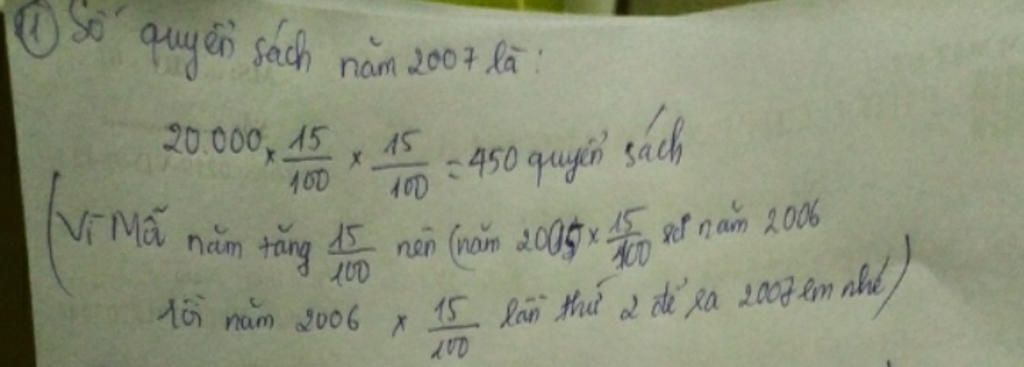 ① Số quyển sách năm 2007 là:
20.000 × 15/100 × 15/100 = 450 quyển sách
(Vì Mỗi năm tăng 15/100 nên (năm 2005 × 15/100 năm 2006
rồi năm 2006 × 15/100 lần thứ 2 để ra 2007 em nhé)